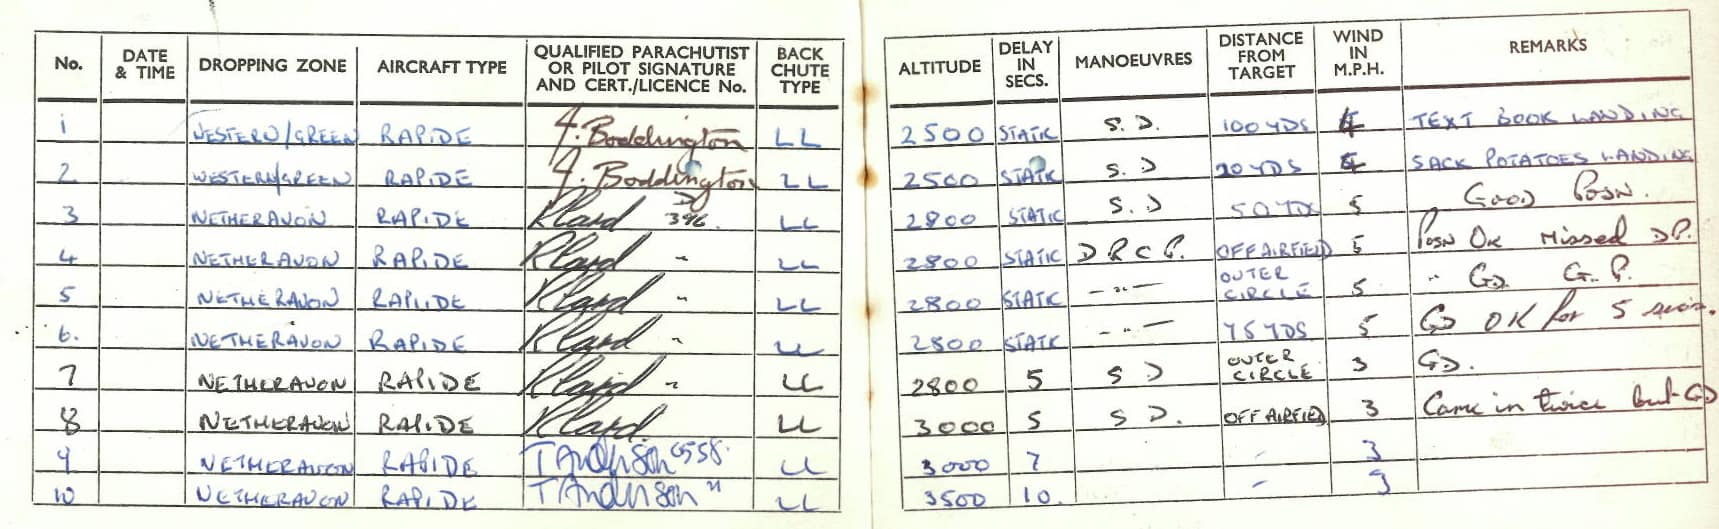 No. DATE & TIME DROPPING ZONE AIRCRAFT TYPE QUALIFIED PARACHUTIST OR PILOT SIGNATURE AND CERT./LICENCE No. BACK CHUTE TYPE ALTITUDE DELAY IN SECS. MANOEUVRES DISTANCE FROM TARGET WIND IN M.P.H. REMARKS
1 WESTERN/GREEN RAPIDE J. Boddington LL 2500 STATIC S. D. 100 YDS 4 TEXT BOOK LANDING
2 WESTERN/GREEN RAPIDE J. Boddington LL 2500 STATIC S. D 20 YDS 4 SACK POTATOES LANDING
3 NETHERAVON RAPIDE 396. LL 2800 STATIC S. D 50 YDS 5 GOOD POSN.
4 NETHERAVON RAPIDE " LL 2800 STATIC D R C P. OFF AIRFIELD 5 POSN OK Missed DP.
5 NETHERAVON RAPIDE " LL 2800 STATIC -"- OUTER CIRCLE 5 " GD G. P.
6. NETHERAVON RAPIDE " LL 2800 STATIC -"- 75 YDS 5 GD OK for 5 secs.
7 NETHERAVON RAPIDE " LL 2800 5 S D OUTER CIRCLE 3 GD.
8 NETHERAVON RAPIDE LL 3000 5 S D. OFF AIRFIELD 3 Came in twice but GD
9 NETHERAVON RAPIDE T Anderson 558. LL 3000 7 - 3
10 NETHERAVON RAPIDE T Anderson " LL 3500 10. - 3